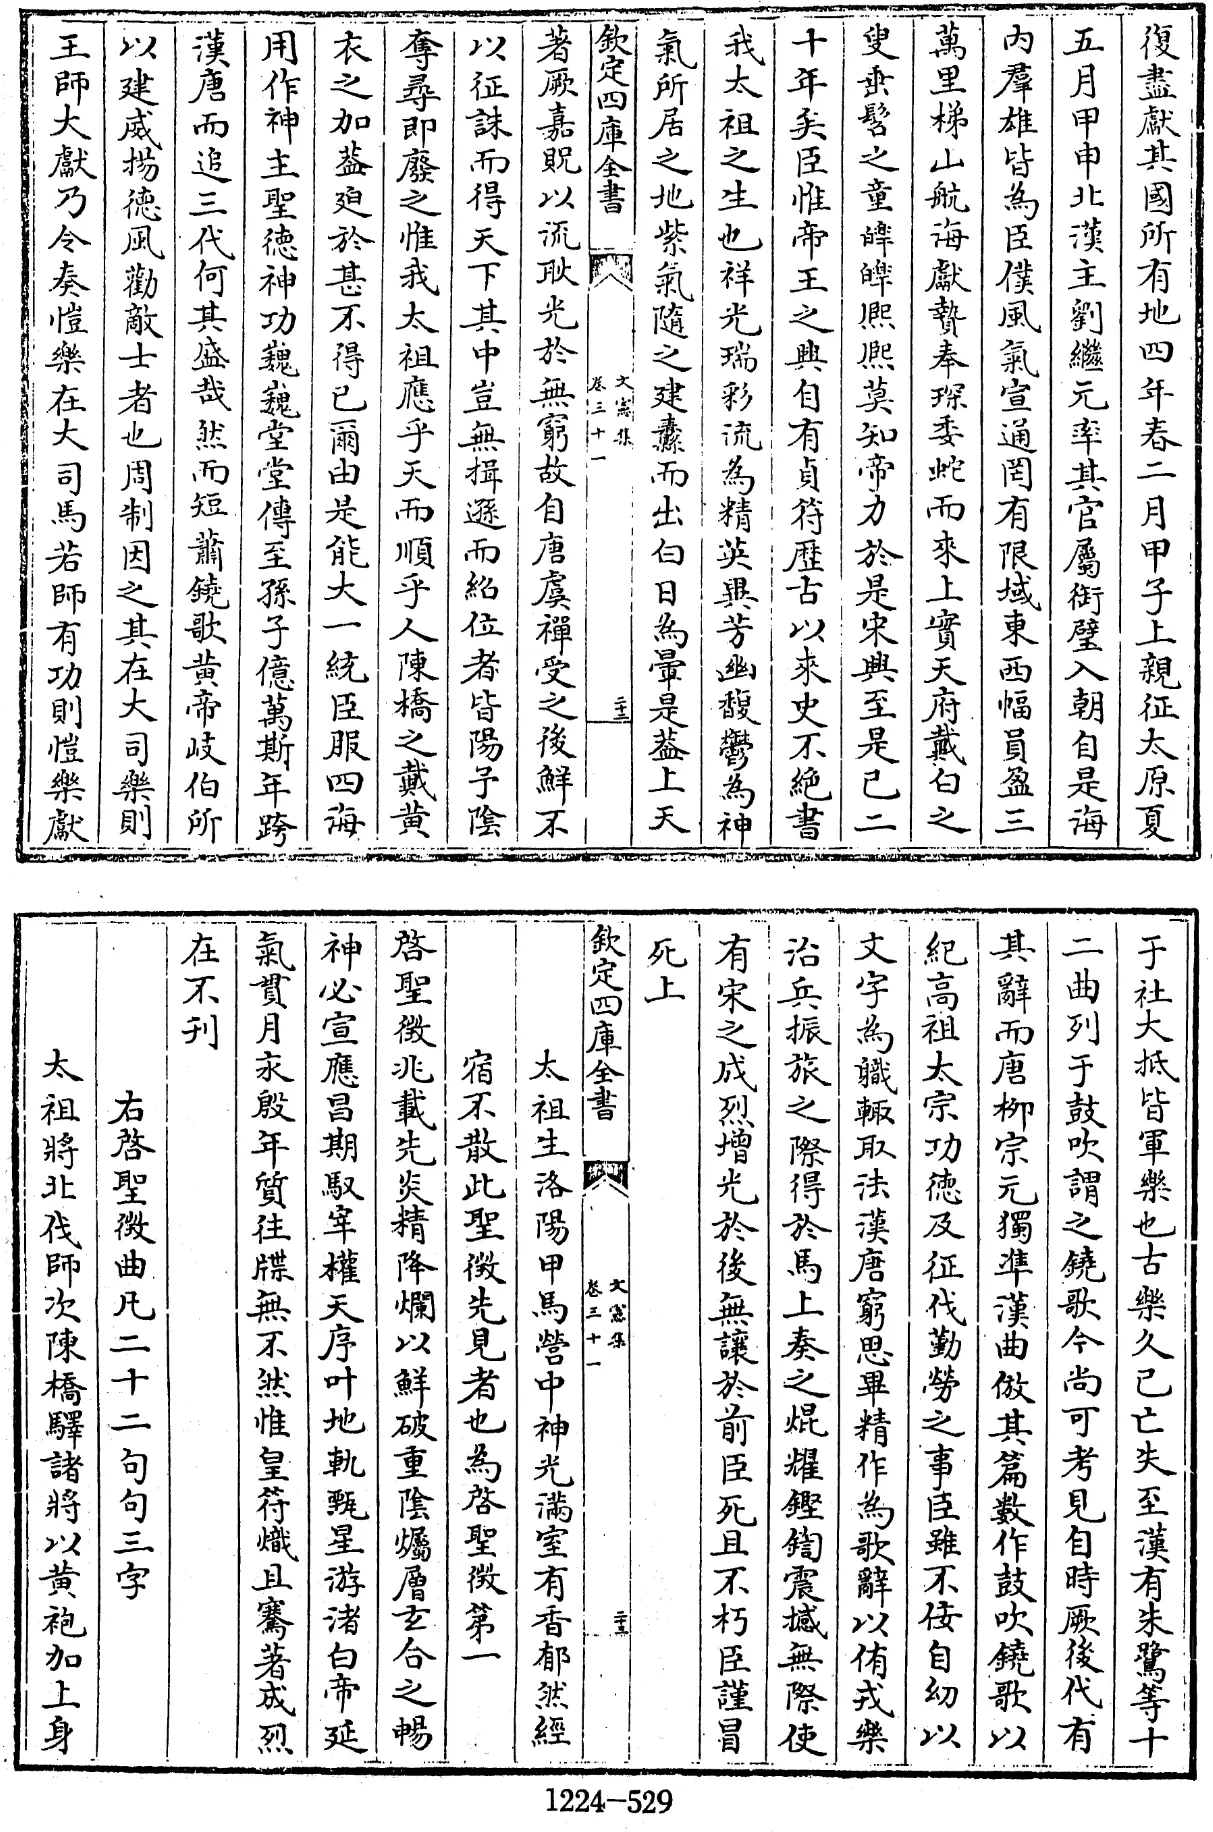 復盡獻其國所有地四年春二月甲子上親征太原夏
五月甲申北漢主劉繼元率其官屬銜璧入朝自是海
内羣雄皆為臣僕風氣宣通罔有限域東西幅員盈三
萬里梯山航海獻贄奉琛委蛇而來上實天府戴白之
叟垂髫之童皥皥熈熈莫知帝力於是宋興至是已二
十年矣臣惟帝王之興自有貞符歴古以來史不絶書
我太祖之生也祥光瑞彩流為精英異芳幽馥鬱為神
氣所居之地紫氣隨之建纛而出白日為暈是葢上天
欽定四庫全書
文憲集
卷三十一
二十二
著厥嘉貺以流耿光於無窮故自唐虞禪受之後鮮不
以征誅而得天下其中豈無揖遜而紹位者皆陽予陰
奪尋即廢之惟我太祖應乎天而順乎人陳橋之戴黄
衣之加葢廹於甚不得已爾由是能大一統臣服四海
用作神主聖德神功巍巍堂堂傳至孫子億萬斯年跨
漢唐而追三代何其盛哉然而短蕭鐃歌黄帝岐伯所
以建威揚德風勸敵士者也周制因之其在大司樂則
王師大獻乃令奏愷樂在大司馬若師有功則愷樂獻
于社大抵皆軍樂也古樂久已亡失至漢有朱鷺等十
二曲列于鼓吹謂之鐃歌今尚可考見自時厥後代有
其辭而唐栁宗元獨準漢曲倣其篇數作鼓吹鐃歌以
紀高祖太宗功德及征伐勤勞之事臣雖不佞自幼以
文字為職輙取法漢唐窮思畢精作為歌辭以侑戎樂
治兵振旅之際得於馬上奏之焜耀鏗鍧震撼無際使
有宋之成烈增光於後無讓於前臣死且不朽臣謹冒
死上
欽定四庫全書
文憲集
卷三十一
二十三
太祖生洛陽甲馬營中神光滿室有香郁然經
宿不散此聖徴先見者也為啓聖徴第一
啓聖徴兆載先炎精降爛以鮮破重陰爥層玄合之暢
神必宣應昌期馭寜權天序叶地軌甄星游渚白帝延
氣貫月永殷年質往牒無不然惟皇符熾且騫著成烈
在不刋
右啓聖徴曲凡二十二句句三字
太祖將北伐師次陳橋驛諸將以黄袍加上身
1224-529